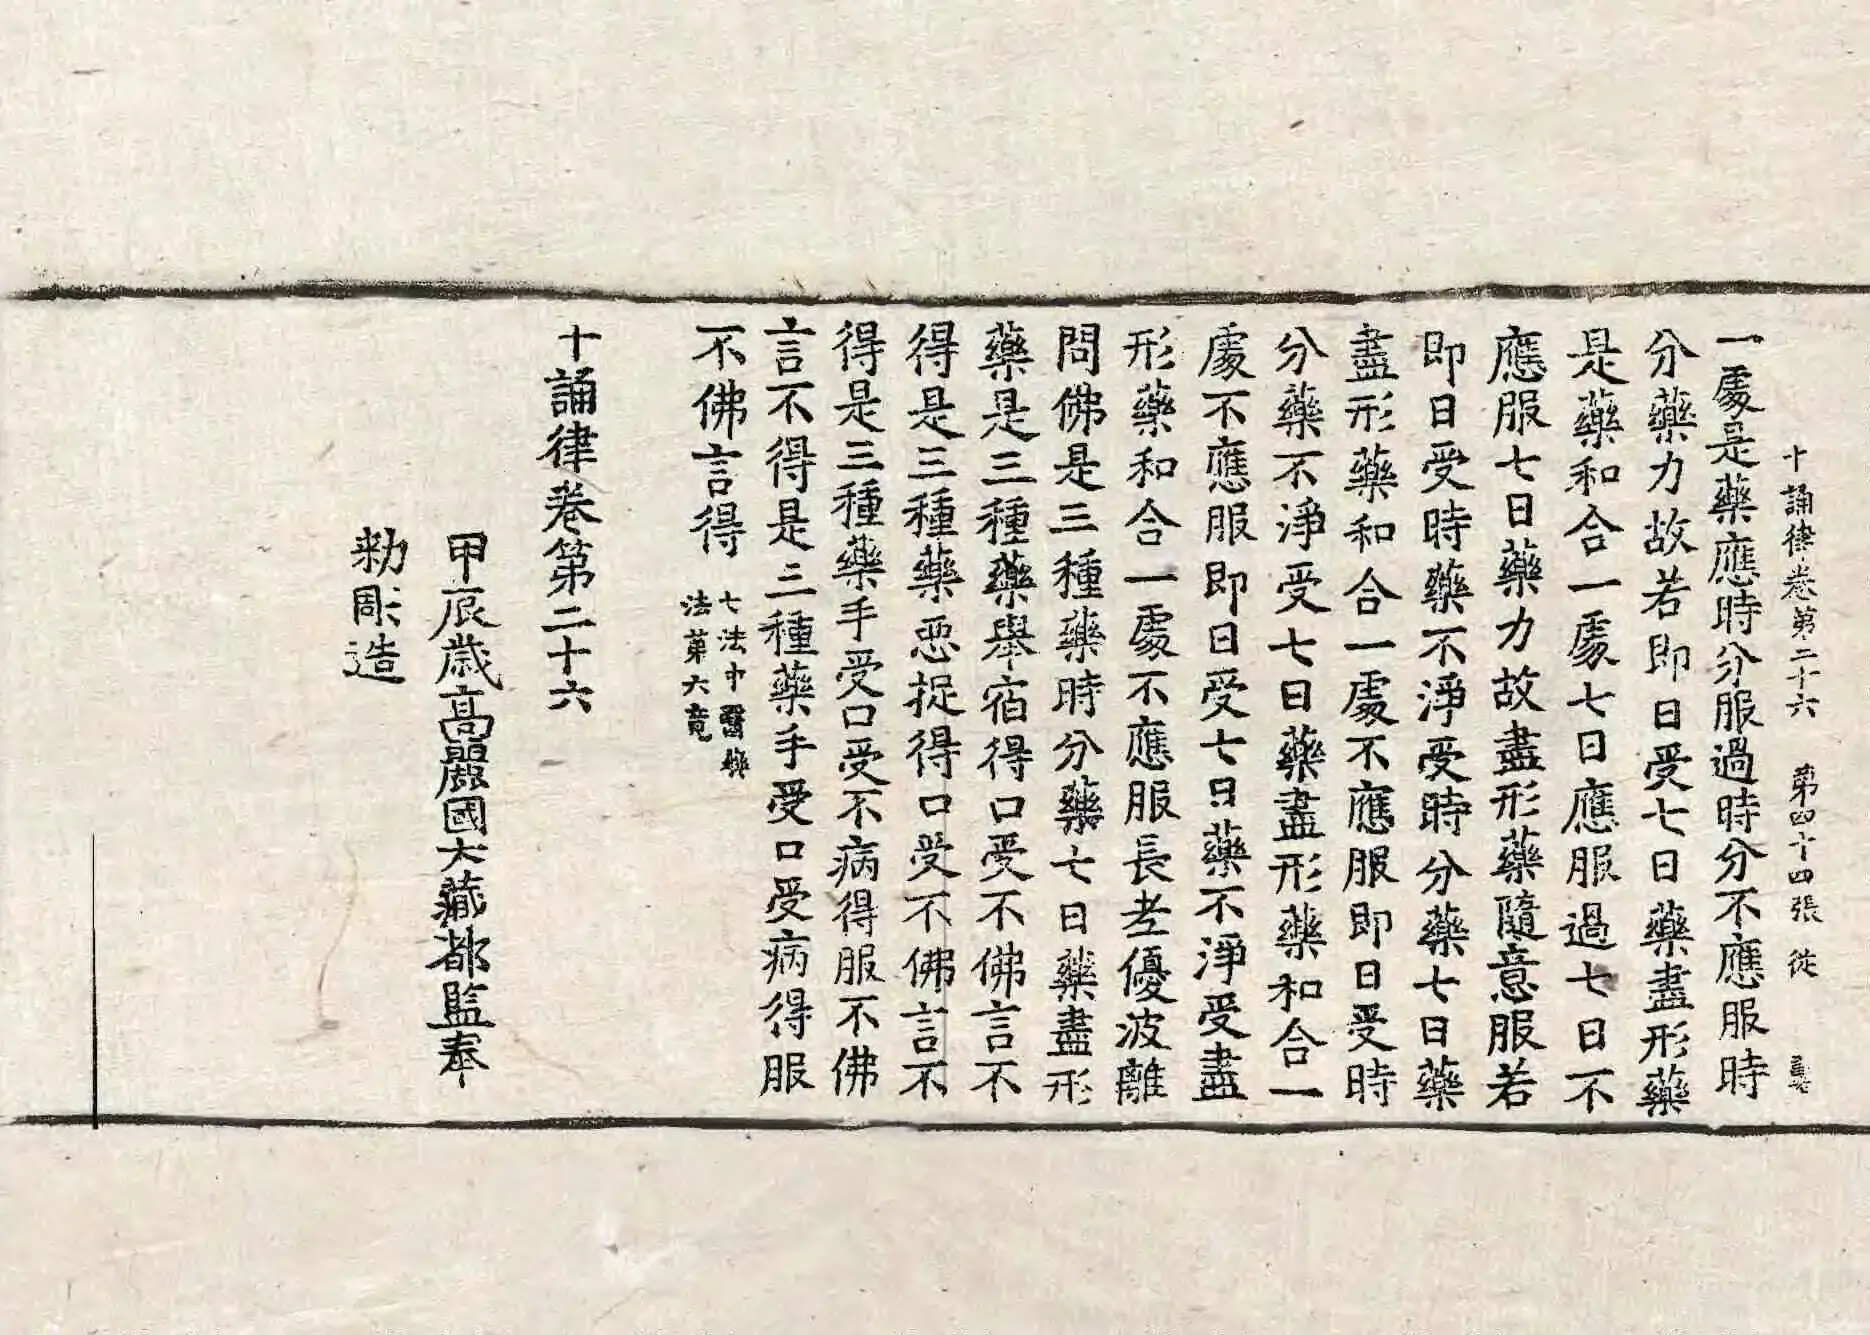 十誦律卷第二十六　第四十四張　從
一處是藥應時分服過時分不應服時
分藥力故若即日受七日藥盡形藥
是藥和合一處七日應服過七日不
應服七日藥力故盡形藥隨意服若
即日受時藥不淨受時分藥七日藥
盡形藥和合一處不應服即日受時
分藥不淨受七日藥盡形藥和合一
處不應服即日受七日藥不淨受盡
形藥和合一處不應服長老優波離
問佛是三種藥時分藥七日藥盡形
藥是三種藥舉宿得口受不佛言不
得是三種藥惡捉得口受不佛言不
得是三種藥手受口受不病得服不佛
言不得是三種藥手受口受病得服
不佛言得
七法中醫藥
法第六竟
十誦律卷第二十六
甲辰歲高麗國大藏都監奉
勅彫造